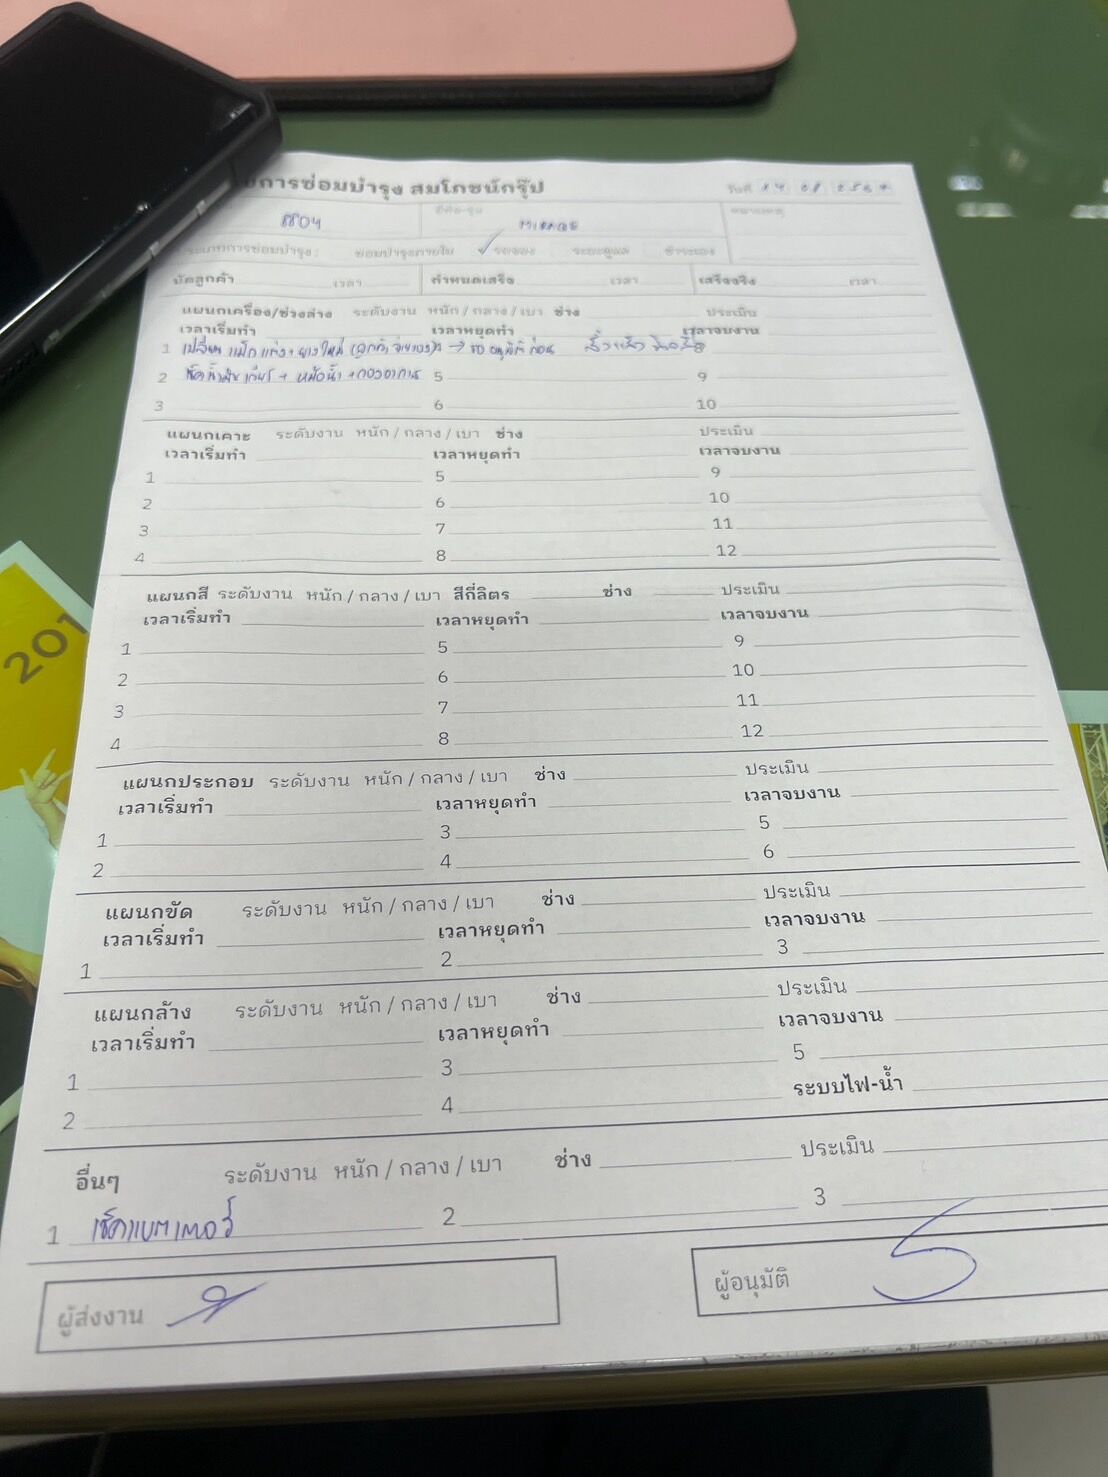 การซ่อมบำรุง สมโภชน์กรุ๊ป วันที่ 14 08 2567
8804 ยี่ห้อ-รุ่น MIRAGE หมายเหตุ
ประเภทการซ่อมบำรุง: ซ่อมบำรุงภายใน ✓ รถจอง
นัดลูกค้า เวลา กำหนดเสร็จ เวลา เสร็จจริง เวลา
แผนกเครื่อง/ช่วงล่าง ระดับงาน หนัก / กลาง / เบา ช่าง ประเมิน
เวลาเริ่มทำ เวลาหยุดทำ เวลาจบงาน
1 เปลี่ยน แม็ก + ยางใหม่ (ลูกค้า → รอ อนุมัติ ก่อน
2 เช็คน้ำมันเกียร์ + หม้อน้ำ + กรองอากาศ 5 9
3 6 10
แผนกเคาะ ระดับงาน หนัก / กลาง / เบา ช่าง ประเมิน
เวลาเริ่มทำ เวลาหยุดทำ เวลาจบงาน
1 5 9
2 6 10
3 7 11
4 8 12
แผนกสี ระดับงาน หนัก / กลาง / เบา สีกี่ลิตร ช่าง ประเมิน
เวลาเริ่มทำ เวลาหยุดทำ เวลาจบงาน
1 5 9
2 6 10
3 7 11
4 8 12
แผนกประกอบ ระดับงาน หนัก / กลาง / เบา ช่าง ประเมิน
เวลาเริ่มทำ เวลาหยุดทำ เวลาจบงาน
1 3 5
2 4 6
แผนกขัด ระดับงาน หนัก / กลาง / เบา ช่าง ประเมิน
เวลาเริ่มทำ เวลาหยุดทำ เวลาจบงาน
1 2 3
แผนกล้าง ระดับงาน หนัก / กลาง / เบา ช่าง ประเมิน
เวลาเริ่มทำ เวลาหยุดทำ เวลาจบงาน
1 3 5
2 4 ระบบไฟ-น้ำ
อื่นๆ ระดับงาน หนัก / กลาง / เบา ช่าง ประเมิน
1 เช็คแบตเตอรี่ 2 3
ผู้ส่งงาน ผู้อนุมัติ
201